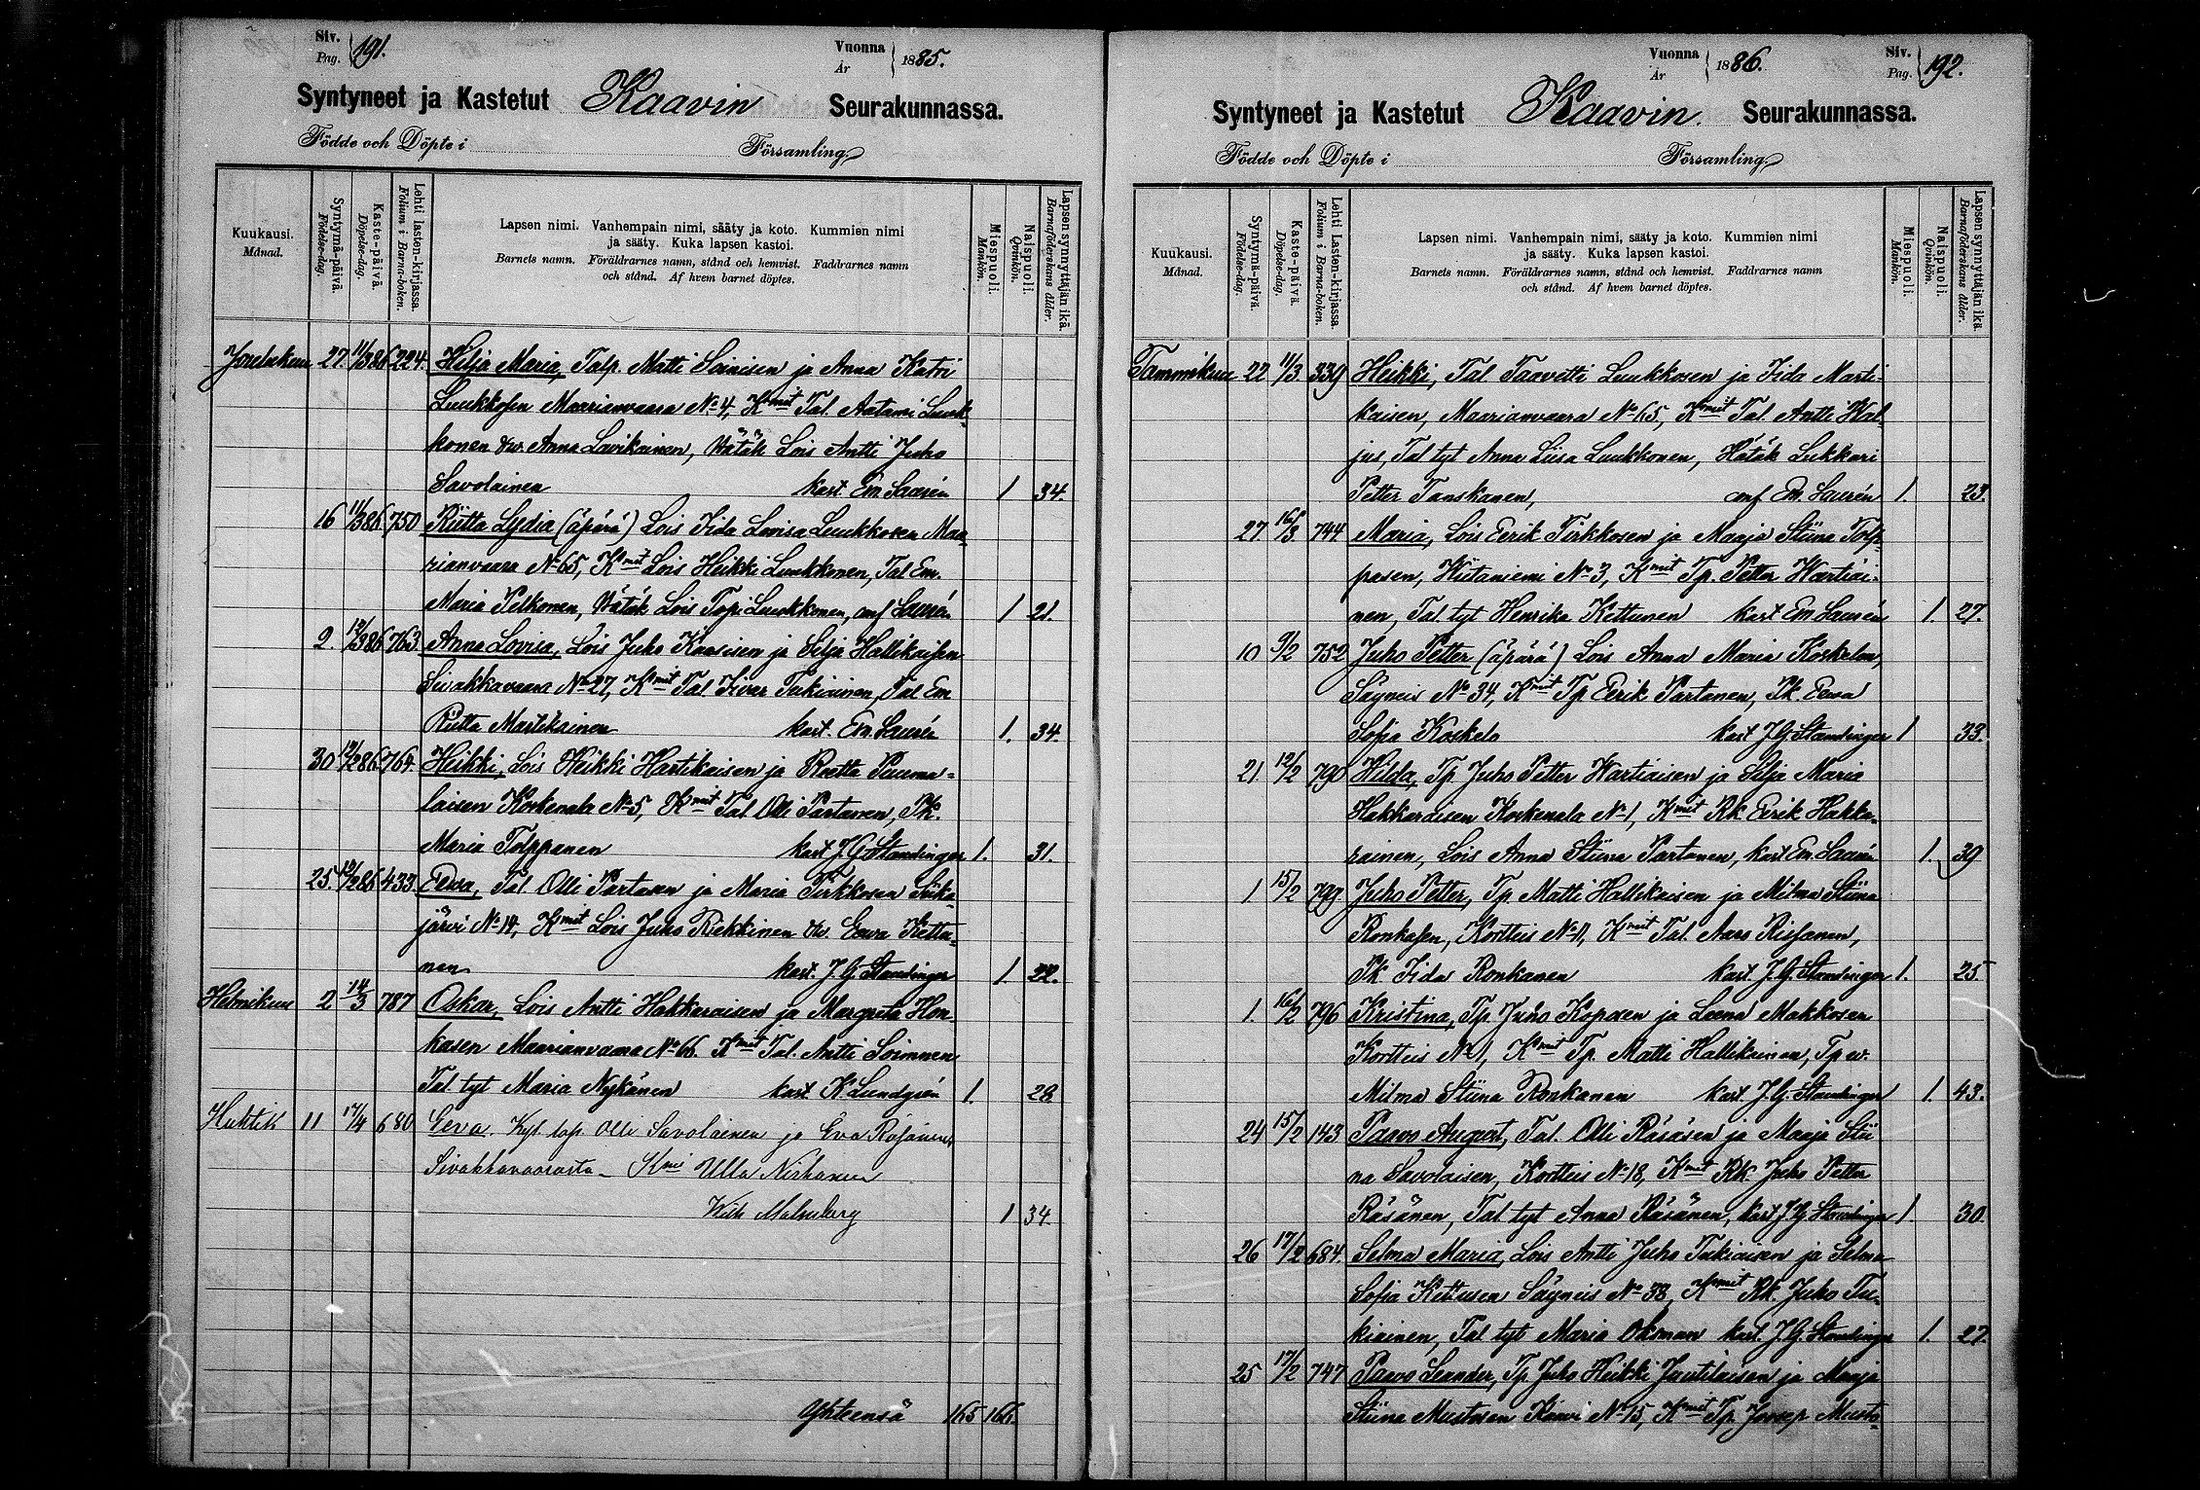 Siv. Pag. 191.
Vuonna År 1885.
Syntyneet ja Kastetut Kaavin Seurakunnassa.
Födde och Döpte i Församling.
Kuukausi. Månad.
Syntymä-päivä. Födelse-dag.
Kaste-päivä. Döpelse-dag.
Lehti lasten-kirjassa. Folium i Barna-boken.
Lapsen nimi. Vanhempain nimi, sääty ja koto. Kummien nimi
ja sääty. Kuka lapsen kastoi.
Barnets namn. Föräldrarnes namn, stånd och hemvist. Faddrarnes namn
och stånd. Af hvem barnet döptes.
Miespuoli. Mankön.
Naispuoli. Qvinkön.
Lapsen synnyttäjän ikä. Barnaföderskans ålder.
Joulukuu 27. 11/3 86 224. Hilja Maria, Talp. Matti Soinisen ja Anna Katri
Luukkosen Maarianvaara No 4, Kmit Tal. Aatami Luuk-
konen & w. Anna Lavikainen, Wätäk Lois Antti Juho
Savolainen kast. Em. Laurén 1 34.
16 11/3 86. 750 Riitta Lydia (äpärä) Lois Iida Lovisa Luukkosen Maa-
rianvaara No 65, Kmit Lois Heikki Luukkonen, Tal Em.
Maria Pelkonen, Wätäk Lois Topi Luukkonen, anf Laurén 1 21.
2. 12/3 86 763. Anna Lovisa, Lois Juho Kaasisen ja Silja Hallikaisen
Sivakkavaara No 27, Kmit Tal Iivar Tukiainen, Tal Em
Riitta Martikainen kast. Em. Laurén 1. 34.
30 12/2 86 764. Heikki, Lois Heikki Hartikaisen ja Reetta Puuma-
laisen Koskenala No 5, Kmit Tal Olli Partanen, Pk.
Maria Tolppanen kast J G Standinger 1. 31.
25. 12/2 86 433. Eewa, Tal Olli Partasen ja Maria Pirkkosen Siika-
järvi No 14, Kmit Lois Juho Riekkinen & w. Eewa Kettu-
nen kast. J. G Standinger 1. 22.
Helmikuu 2 14/3 787 Oskar, Lois Antti Hakkaraisen ja Margreta Hon-
kasen Maarianvaara No 66. Kmit Tal. Antti Soininen
Tal. tyt Maria Nykänen kast K. Lundgrén 1. 28
Huhtik 11 17/4 680 Eeva. Kyl. lap. Olli Savolainen ja Eva Räsänen
Sivakkavaarasta. Kmi Ulla Nirhanen
Wilh Malmberg 1 34.
Yhteensä 165 166.
Vuonna År 1886.
Siv. Pag. 192.
Syntyneet ja Kastetut Kaavin. Seurakunnassa.
Födde och Döpte i Församling.
Kuukausi. Månad.
Syntymä-päivä. Födelse-dag.
Kaste-päivä. Döpelse-dag.
Lehti Lasten-kirjassa. Folium i Barna-boken.
Lapsen nimi. Vanhempain nimi, sääty ja koto. Kummien nimi
ja sääty. Kuka lapsen kastoi.
Barnets namn. Föräldrarnes namn, stånd och hemvist. Faddrarnes namn
och stånd. Af hvem barnet döptes.
Miespuoli. Mankön.
Naispuoli. Qvinkön.
Lapsen synnyttäjän ikä. Barnaföderskans ålder.
Tammikuu 22 11/3 339 Heikki, Tal Taavetti Luukkosen ja Iida Marti-
kaisen, Maarianvaara No 65, Kmit Tal. Antti Hal-
jus, Tal tyt Anna Liisa Luukkonen, Hätäk Lukkari
Petter Tanskanen, anf Em. Laurén 1. 23.
27 16/3 744 Maria, Lois Eerik Pirkkosen ja Maaja Stiina Tolp-
pasen, Niitaniemi No 3, Kmit Tp. Petter Wartiai-
nen, Tal. tyt Henrika Kettunen kast Em Laurén 1. 27.
10 9/2 752 Juho Petter (äpärä) Lois Anna Maria Koskelon,
Säyneis No 34, Kmit Tp Eerik Partanen, Pk. Eewa
Sofia Koskelo kast J. G. Standinger 1 33.
21 12/2 790 Hilda, Tp Juho Petter Wartiaisen ja Silja Maria
Hakkaraisen Koskenala No 1, Kmit Rk Eerik Hakka-
rainen, Lois Anna Stiina Partanen, kast Em Laurén 1. 39
1 15/2 799. Juho Petter, Tp Matti Hallikaisen ja Milma Stiina
Ronkasen, Kortteis No 11, Kmit Tal. Aaro Rissanen,
Pk Iida Ronkanen kast. J. G. Standinger 1. 25
1. 16/2 796 Kristina, Tp. Juho Koposen ja Leena Makkosen
Kortteis No 1, Kmit Tp. Matti Hallikainen, Tp w.
Milma Stiina Ronkanen kast J. G. Standinger 1. 43.
24 15/2 143 Paavo August, Tal. Olli Räsäsen ja Maaja Stii
na Savolaisen, Kortteis No 18, Kmit Rk. Juho Petter
Räsänen, Tal tyt Anna Räsänen, kast J. G Standinger 1. 30
26 17/2 684. Selma Maria, Lois Antti Juho Tukiaisen ja Selma
Sofia Kettusen Säyneis No 38, Kmit Rk. Juho Tu-
kiainen, Tal tyt Maria Oksman kast J. G. Standinger 1. 27
25 17/2 747 Paavo Leander, Tp. Juho Heikki Jantilaisen ja Maaja
Stiina Mustosen Kaavi No 15, Kmit Tp. Joosep Musto-